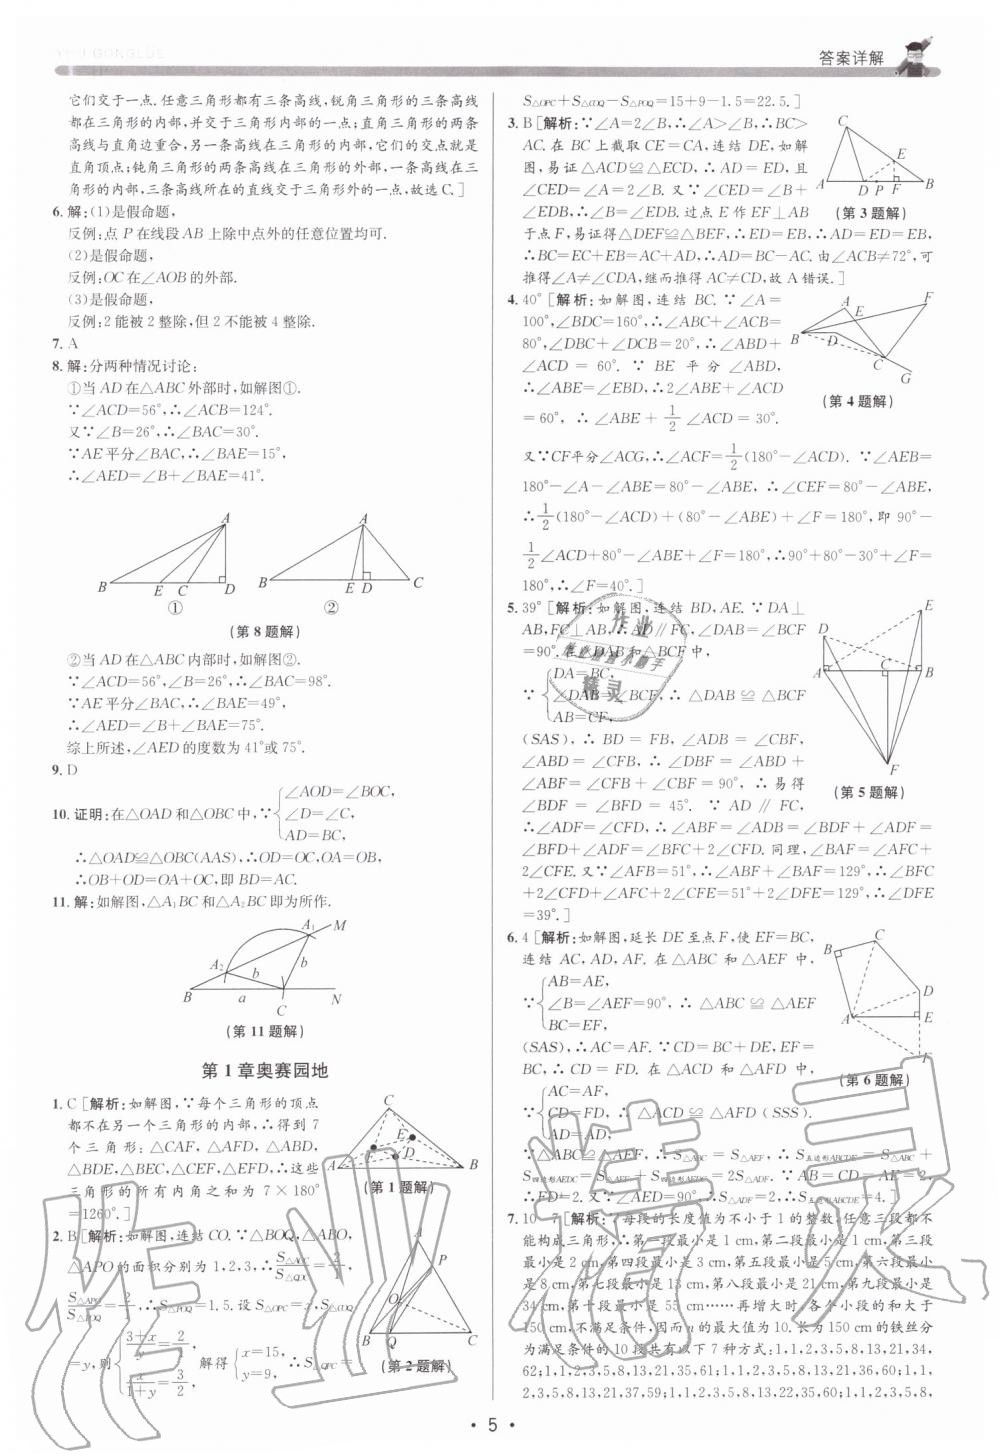 答案详解
它们交于一点.任意三角形都有三条高线,锐角三角形的三条高线
都在三角形的内部,并交于三角形内部的一点;直角三角形的两条
高线与直角边重合,另一条高线在三角形的内部,它们的交点就是
直角顶点;钝角三角形的两条高线在三角形的外部,一条高线在三
角形的内部,三条高线所在的直线交于三角形外的一点,故选C.]
6.解:(1)是假命题,
反例:点P在线段AB上除中点外的任意位置均可.
(2)是假命题,
反例:OC在∠AOB的外部.
(3)是假命题,
反例:2能被2整除,但2不能被4整除.
7.A
8.解:分两种情况讨论:
①当AD在△ABC外部时,如解图①.
∵∠ACD=56°,∴∠ACB=124°.
又∵∠B=26°,∴∠BAC=30°.
∵AE平分∠BAC,∴∠BAE=15°,
∴∠AED=∠B+∠BAE=41°.
A
B E C D
①
A
B E D C
②
(第8题解)
②当AD在△ABC内部时,如解图②.
∵∠ACD=56°,∠B=26°,∴∠BAC=98°.
∵AE平分∠BAC,∴∠BAE=49°,
∴∠AED=∠B+∠BAE=75°.
综上所述,∠AED的度数为41°或75°.
9.D
10.证明:在△OAD和△OBC中,∵{∠AOD=∠BOC,
∠D=∠C,
AD=BC,
∴△OAD≌△OBC(AAS),∴OD=OC,OA=OB,
∴OB+OD=OA+OC,即BD=AC.
11.解:如解图,△A₁BC和△A₂BC即为所作.
A₁ M
A₂ b b
B a C N
(第11题解)
第1章奥赛园地
1.C[解析:如解图,∵每个三角形的顶点
都不在另一个三角形的内部,∴得到7
个三角形:△CAF,△AFD,△ABD,
△BDE,△BEC,△CEF,△EFD,∴这些
三角形的所有内角之和为7×180°
=1260°.]
C
E
F D
A B
(第1题解)
2.B[解析:如解图,连结CO.∵△BOQ,△ABO,
△APO的面积分别为1,2,3,∴
=1.5.设S△OPC=x,S△COQ
=y,则{(3+x)/y=2/1... 解得{x=15,
y=9,
∴S△OPC=
A
P
O
B Q C
(第2题解)
S△OPC+S△COQ-S△POQ=15+9-1.5=22.5.]
3.B[解析:∵∠A=2∠B,∴∠A>∠B,∴BC>
AC.在BC上截取CE=CA,连结DE,如解
图,易证△ACD≌△ECD,∴AD=ED,且
∠CED=∠A=2∠B.又∵∠CED=∠B+
∠EDB,∴∠B=∠EDB.过点E作EF⊥AB
于点F,易证得△DEF≌△BEF,∴ED=EB,∴AD=ED=EB,
∴BC=EC+EB=AC+AD,∴AD=BC-AC.由∠ACB≠72°,可
推得∠A≠∠CDA,继而推得AC≠CD,故A错误.]
C
E
A D P F B
(第3题解)
4.40°[解析:如解图,连结BC.∵∠A=
100°,∠BDC=160°,∴∠ABC+∠ACB=
80°,∠DBC+∠DCB=20°,∴∠ABD+
∠ACD=60°.∵BE平分∠ABD,
∴∠ABE=∠EBD,∴2∠ABE+∠ACD
=60°,∴∠ABE+1/2∠ACD=30°.
又∵CF平分∠ACG,∴∠ACF=1/2(180°-∠ACD).∵∠AEB=
180°-∠A-∠ABE=80°-∠ABE,∴∠CEF=80°-∠ABE,
∴1/2(180°-∠ACD)+(80°-∠ABE)+∠F=180°,即90°-
1/2∠ACD+80°-∠ABE+∠F=180°,∴90°+80°-30°+∠F=
180°,∴∠F=40°.]
A F
E
B D
C
G
(第4题解)
5.39°[解析:如解图,连结BD,AE.∵DA⊥
AB,FC⊥AB,∴AD∥FC,∠DAB=∠BCF
=90°.在△DAB和△BCF中,
∵{DA=BC,
∠DAB=∠BCF,∴△DAB≌△BCF
AB=CF,
(SAS),∴BD=FB,∠ADB=∠CBF,
∠ABD=∠CFB,∴∠DBF=∠ABD+
∠ABF=∠CFB+∠CBF=90°,∴易得
∠BDF=∠BFD=45°.∵AD∥FC,
∴∠ADF=∠CFD,∴∠ABF=∠ADB=∠BDF+∠ADF=
∠BFD+∠ADF=∠BFC+2∠CFD.同理,∠BAF=∠AFC+
2∠CFE.又∵∠AFB=51°,∴∠ABF+∠BAF=129°,∴∠BFC
+2∠CFD+∠AFC+2∠CFE=51°+2∠DFE=129°,∴∠DFE
=39°.]
E
D
A C B
F
(第5题解)
6.4[解析:如解图,延长DE至点F,使EF=BC,
连结AC,AD,AF.在△ABC和△AEF中,
∵{AB=AE,
∠B=∠AEF=90°,∴△ABC≌△AEF
BC=EF,
(SAS),∴AC=AF.∵CD=BC+DE,EF=
BC,∴CD=FD.在△ACD和△AFD中,
∵{AC=AF,
CD=FD,∴△ACD≌△AFD(SSS).
AD=AD,
∵△ABC≌△AEF,∴S△ABC=S△AEF,∴S五边形ABCDE=S△ABC+
S四边形AEDC=S△AEF+S四边形AEDC=2S△ADF.∵AB=CD=AE=2,
∴FD=2.又∵∠AED=90°,∴S△ADF=2,∴S五边形ABCDE=4.]
C
B
D
A E
F
(第6题解)
7.10 7[解析:∵每段的长度值为不小于1的整数,任意三段都不
能构成三角形,∴第一段最小是1 cm,第二段最小是1 cm,第三段
最小是2 cm,第四段最小是3 cm,第五段最小是5 cm,第六段最小
是8 cm,第七段最小是13 cm,第八段最小是21 cm,第九段最小是
34 cm,第十段最小是55 cm……再增大时,各个小段的和大于
150 cm,不满足条件,因而n的最大值为10.长为150 cm的铁丝分
为满足条件的10段共有以下7种方式:1,1,2,3,5,8,13,21,34,
62;1,1,2,3,5,8,13,21,35,61;1,1,2,3,5,8,13,21,36,60;1,1,
2,3,5,8,13,21,37,59;1,1,2,3,5,8,13,22,35,60;1,1,2,3,5,8,
• 5 •
作业精灵